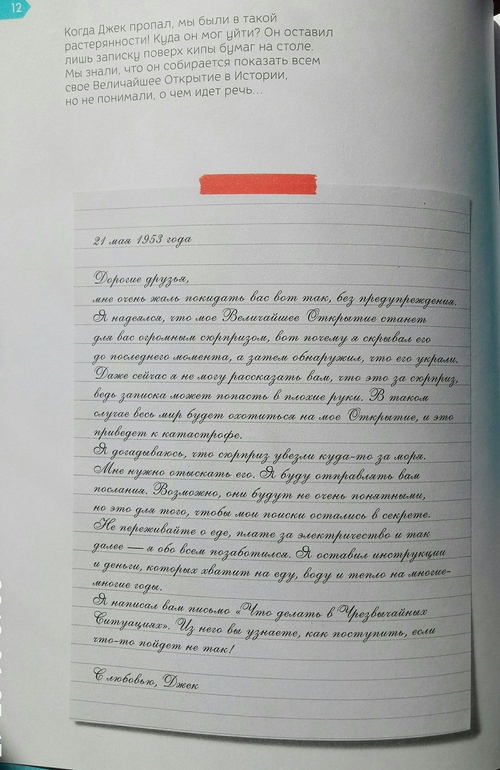 12
Когда Джек пропал, мы были в такой
растерянности! Куда он мог уйти? Он оставил
лишь записку поверх кипы бумаг на столе.
Мы знали, что он собирается показать всем
свое Величайшее Открытие в Истории,
но не понимали, о чем идет речь...
21 мая 1953 года
Дорогие друзья,
мне очень жаль покидать вас вот так, без предупреждения.
Я надеялся, что мое Величайшее Открытие станет
для вас огромным сюрпризом, вот почему я скрывал его
до последнего момента, а затем обнаружил, что его украли.
Даже сейчас я не могу рассказать вам, что это за сюрприз,
ведь записка может попасть в плохие руки. В таком
случае весь мир будет охотиться на мое Открытие, и это
приведет к катастрофе.
Я догадываюсь, что сюрприз увезли куда-то за моря.
Мне нужно отыскать его. Я буду отправлять вам
послания. Возможно, они будут не очень понятными,
но это для того, чтобы мои поиски остались в секрете.
Не переживайте о еде, плате за электричество и так
далее — я обо всем позаботился. Я оставил инструкции
и деньги, которых хватит на еду, воду и тепло на многие-
многие годы.
Я написал вам письмо «Что делать в Чрезвычайных
Ситуациях». Из него вы узнаете, как поступить, если
что-то пойдет не так!
С любовью, Джек